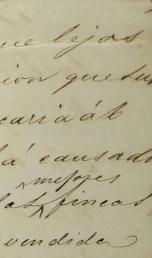 que lejos
cion que su
caria át
há causado
mejores
las fincas
vendida